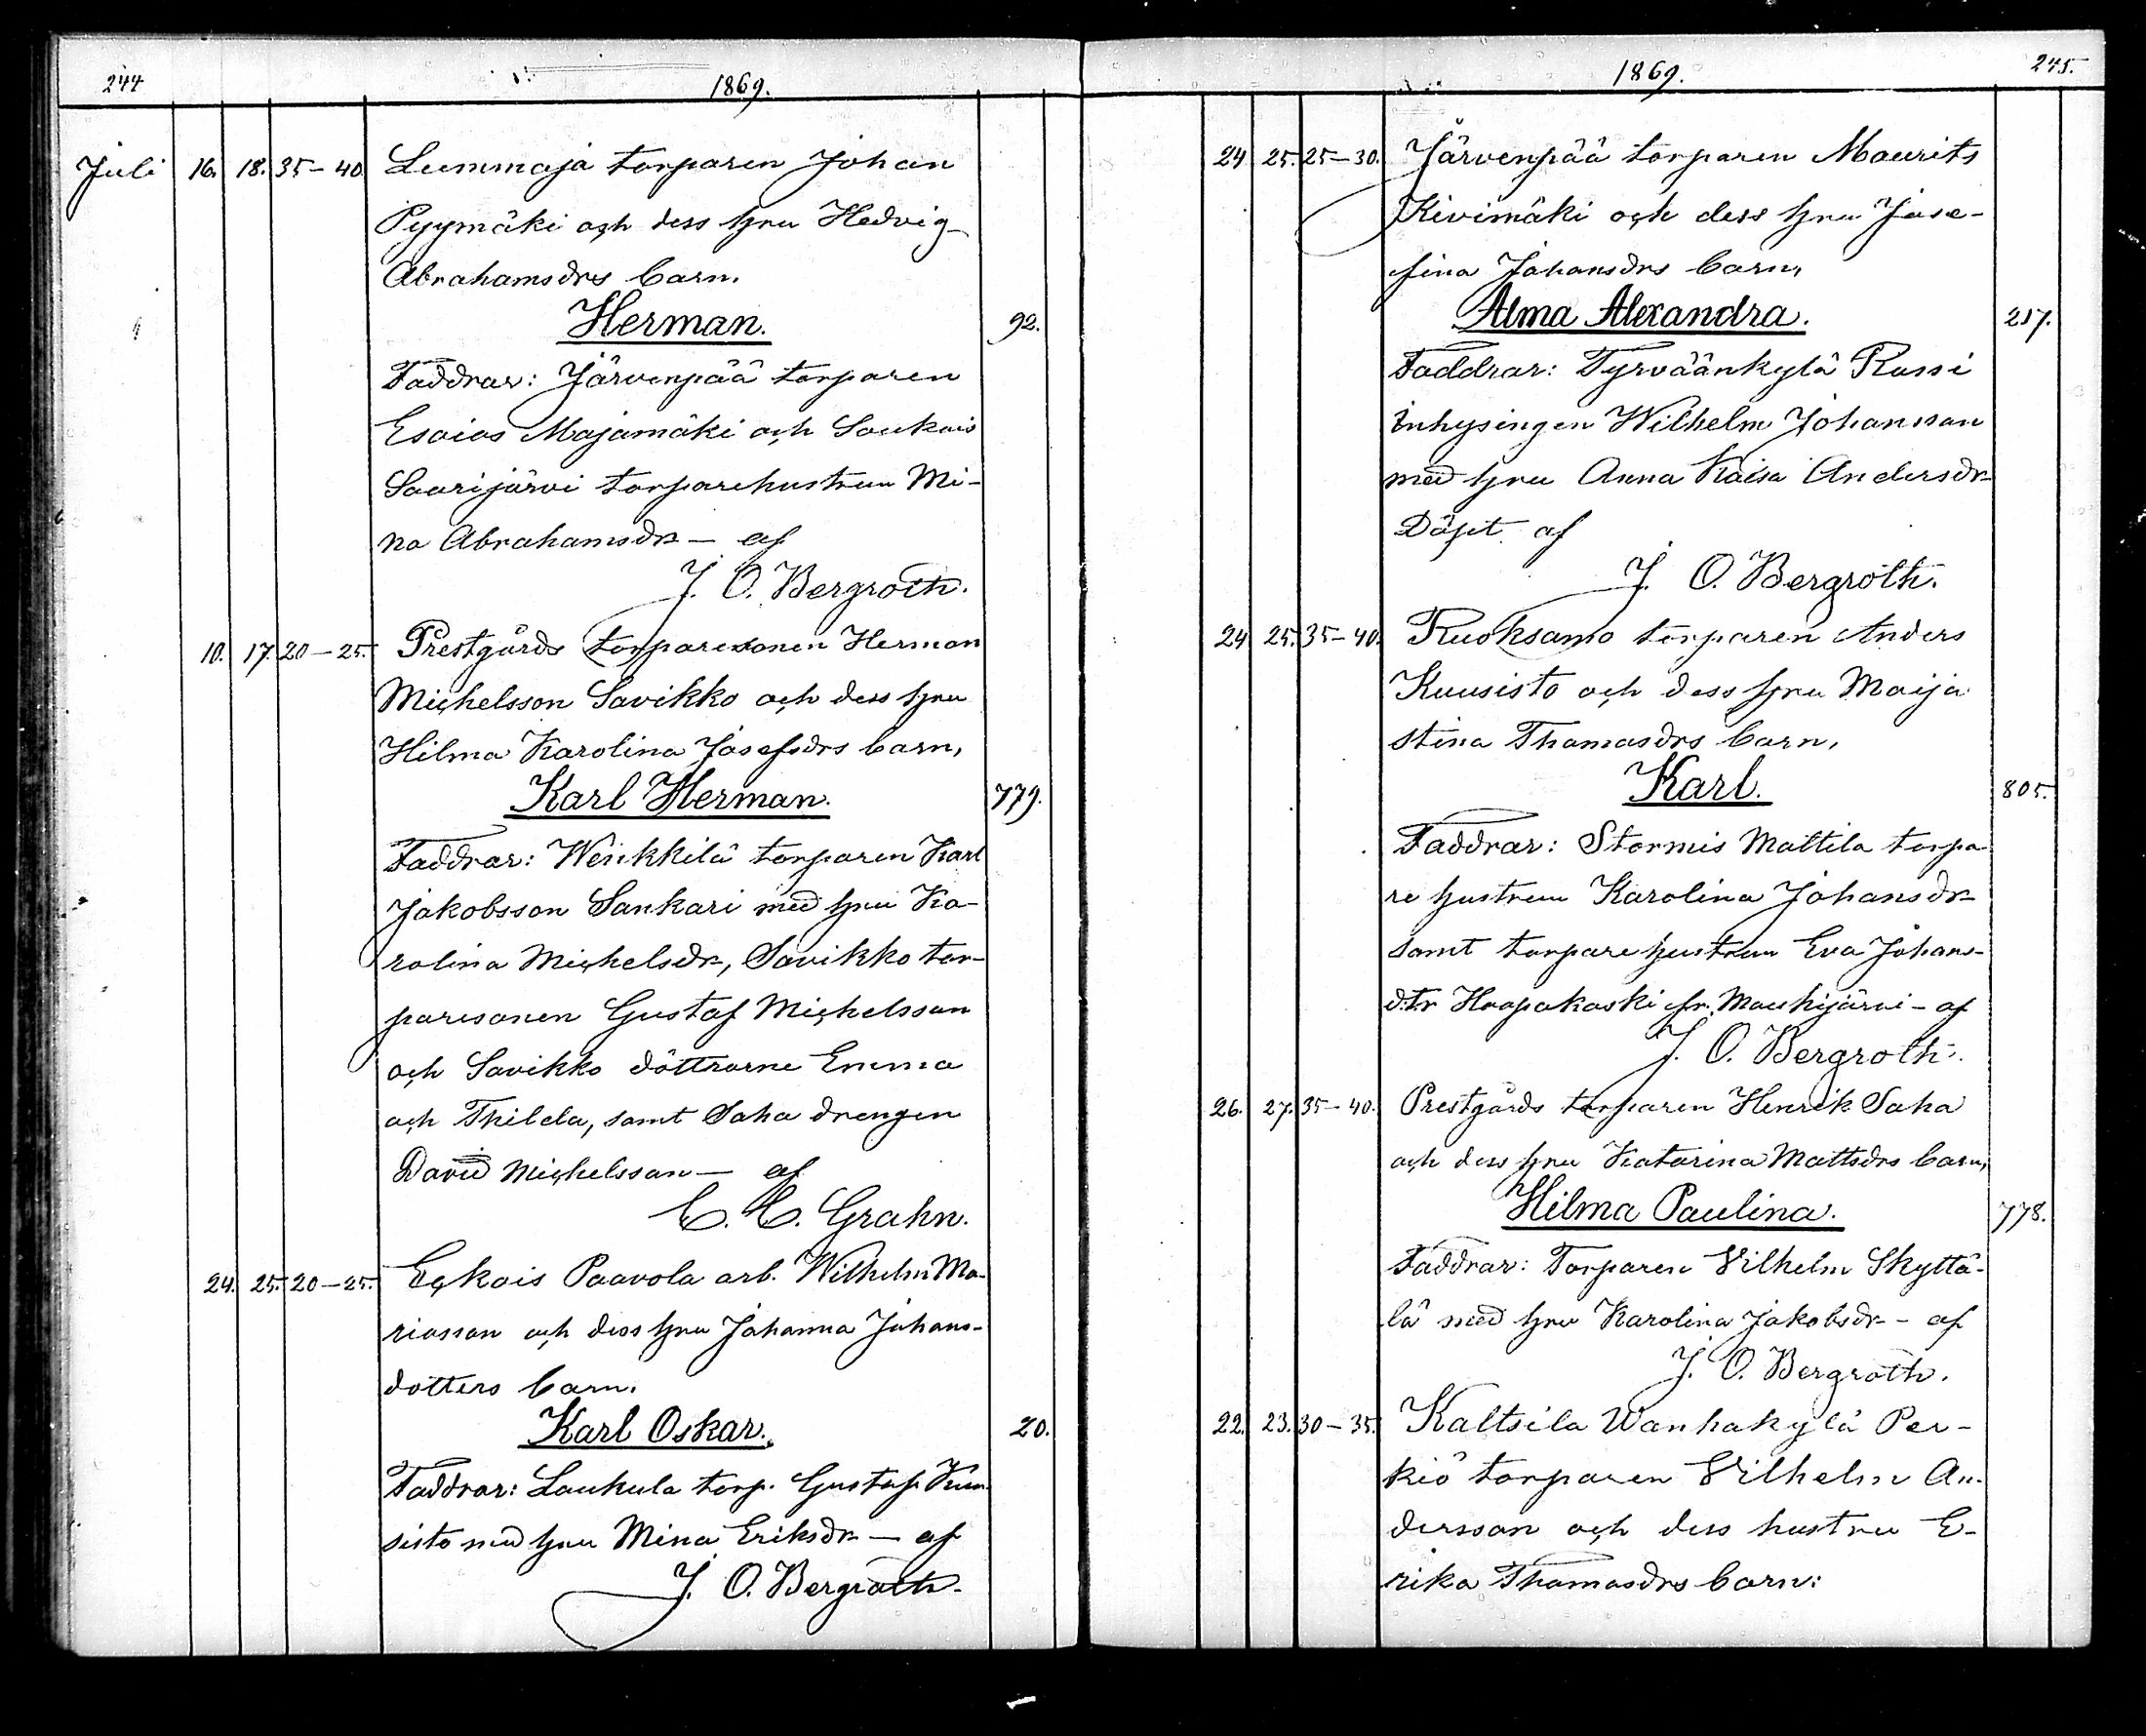 244
1869.
Juli 16. 18. 35–40. Lummaja torparen Johan
Pyymäki och dess hru Hedvig
Abrahamsdrs barn.
Herman. 92.
Faddrar: Järvenpää torparen
Esaias Majamäki och Soukais
Saarijärvi torparehustrun Mi-
na Abrahamsdr – af
J. O. Bergroth.
10. 17. 20–25. Prestgårds torparesonen Herman
Michelsson Savikko och dess hru
Hilma Karolina Josefsdrs barn,
Karl Herman. 779.
Faddrar: Wänkkilä torparen Karl
Jakobsson Sankari med hru Ka-
rolina Michelsdr, Savikko tor-
paresonen Gustaf Michelsson
och Savikko döttrarne Emma
och Thilda, samt Saha drengen
David Michelsson – af
C. C. Grahn.
24. 25. 20–25. Eçkois Paavola arb. Wilhelm Ma-
riasson och dess hru Johanna Johans-
dotters barn.
Karl Oskar. 20.
Faddrar: Laukula torp. Gustaf Kuu-
sisto med hru Mina Eriksdr – af
J. O. Bergroth.
1869.
245.
24 25. 25–30. Järvenpää torparen Maurits
Kivimäki och dess hru Jose-
fina Johansdrs barn,
Alma Alexandra. 217.
Faddrar: Tyrväänkylä Rassi
inhysingen Wilhelm Johansson
med hru Anna Kaisa Andersdr
Döpit af
J. O. Bergroth.
24 25. 35–40. Ruoksamo torparen Anders
Kuusisto och dess hru Maija
Stina Thomasdrs barn,
Karl. 805.
Faddrar: Stormis Mattila torpa-
re hustrun Karolina Johansdr
samt torpare hustrun Eva Johans-
dtr Haapakoski fr. Mouhijärvi – af
J. O. Bergroth.
26. 27. 35–40. Prestgårds torparen Henrik Saha
och dess hru Katarina Mattsdrs barn,
Hilma Paulina. 778.
Faddrar: Torparen Vilhelm Skyttä-
lä med hru Karolina Jakobsdr – af
J. O. Bergroth.
22. 23. 30–35. Kaltsila Wanhakylä Per-
kiö torparen Vilhelm An-
dersson och dess hustru E-
rika Thomasdrs barn: